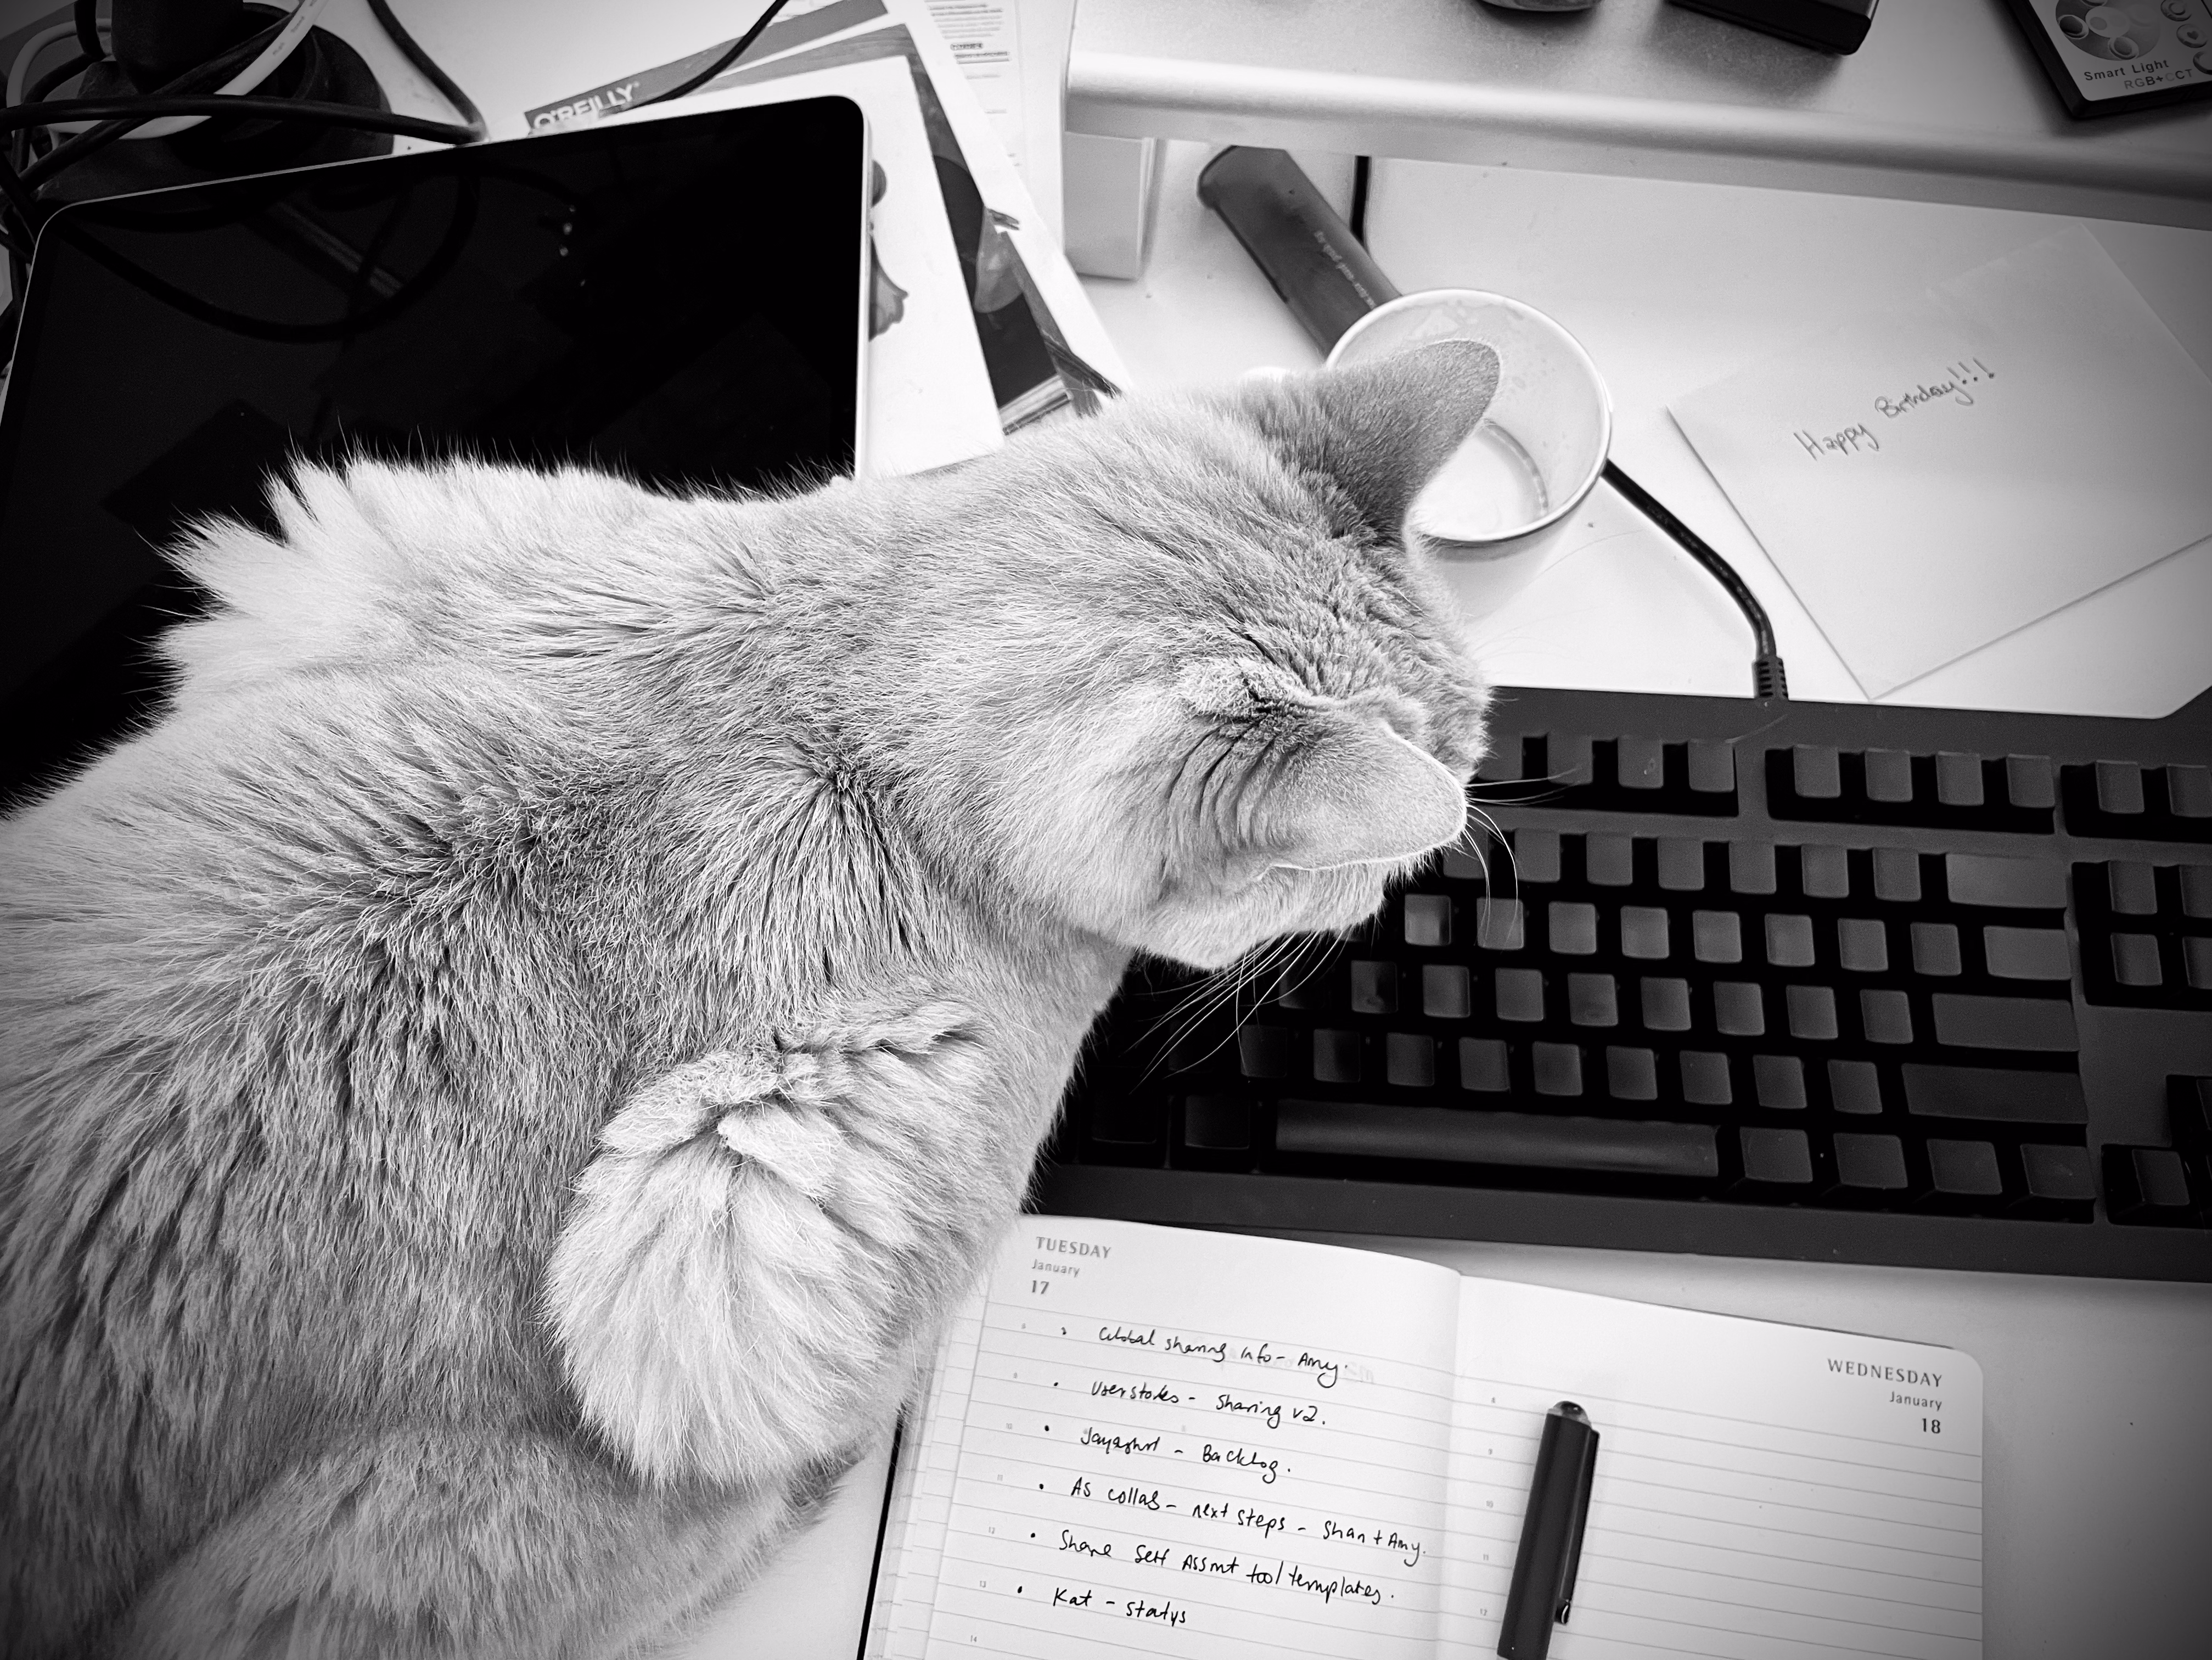 O'REILLY
Smart Light
RGB+CCT
Happy Birthday!!!
TUESDAY
January
17
Global sharing info - Amy.
User stories - Sharing v2.
- Backlog.
As collab - next steps - Shan + Amy.
Share Self Assmt tool templates.
Kat - status
WEDNESDAY
January
18